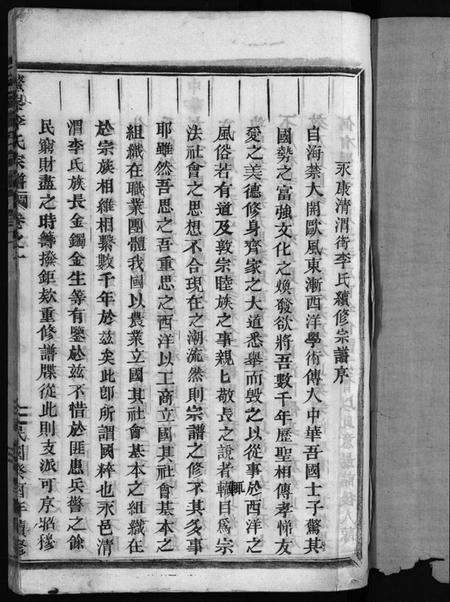 永康清渭街李氏續修宗譜序
自海禁大開歐風東漸西洋學術傳人中華吾國士子驚其
國勢之富強文化之煥發欲將吾數千年歷聖相傳孝悌友
愛之美德修身齊家之大道悉舉而毀之以從事於西洋之
風俗若有道及敦宗睦族之事親上敬長之說者輒目爲宗
法社會之思想不合現在之潮流然則宗譜之修不其多事
耶雖然吾思之吾重思之西洋以工商立國其社會基本之
組織在職業團體我國以農業立國其社會基本之組織在
於宗族相維相繫數千年於茲矣此即所謂國粹也永邑清
渭李氏族長金鐲金生等有鑒於茲不惜於匪患兵警之餘
民窮財盡之時籌撥鉅欵重修譜牒從此則支派可序猶穆
李氏宗譜 卷之一
民國癸酉年續修